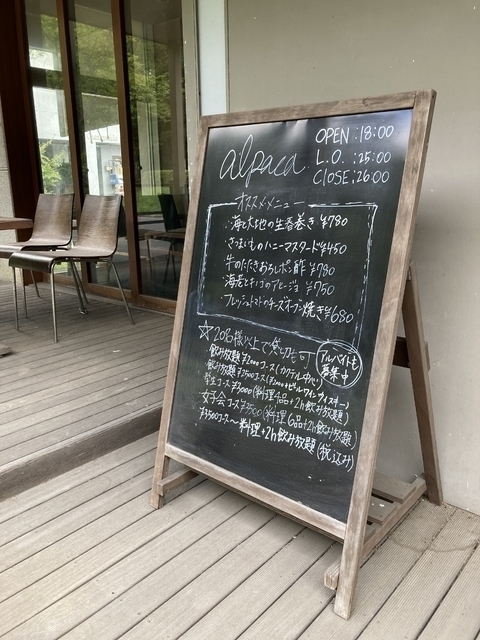 alpaca
OPEN:18:00
L.O.:25:00
CLOSE:26:00
オススメメニュー
・海と大地の生春巻き ¥780
・さつまいものハニーマスタード ¥450
・牛のたたきおろしポン酢 ¥780
・海老とキノコのアヒージョ ¥750
・フレッシュトマトのチーズオーブン焼き ¥680
☆20名様以上で貸切も可
アルバイトも
募集中
・飲み放題¥2000コース(カクテル中心)
・飲み放題¥2500コース(¥2000+ビール・ワイン・ウィスキー)
学生コース¥3000(料理4品+2h飲み放題)
女子会コース¥3500(料理6品+2h飲み放題)
¥3500コース〜料理+2h飲み放題(税込み)